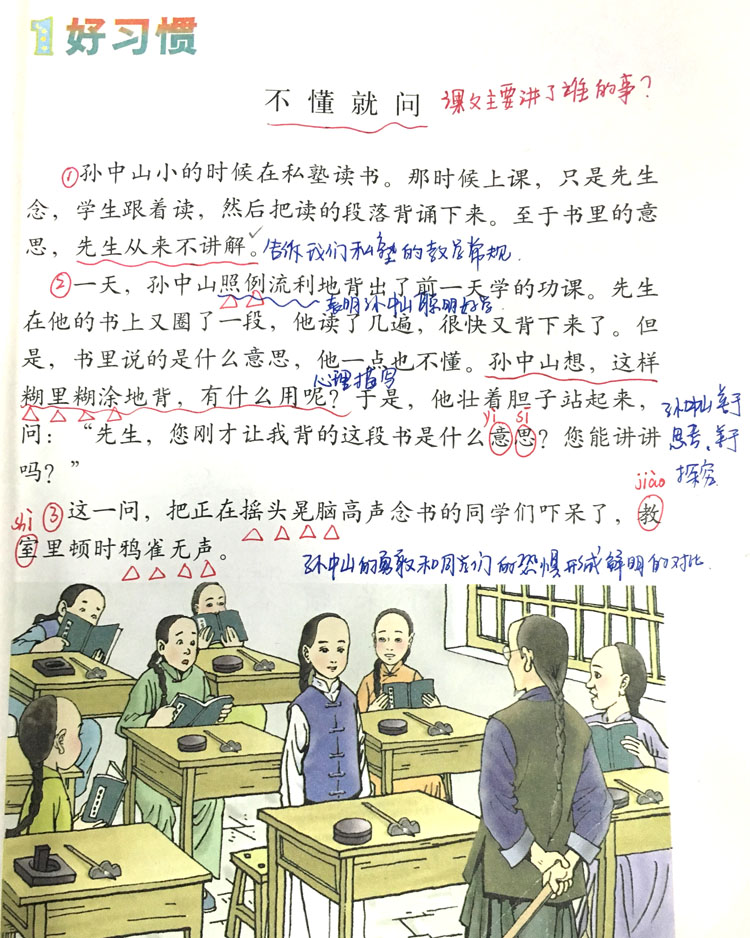 1 好习惯
不懂就问 课文主要讲了谁的事？
①孙中山小的时候在私塾读书。那时候上课，只是先生
念，学生跟着读，然后把读的段落背诵下来。至于书里的意
思，先生从来不讲解。告诉我们私塾的教学常规.
②一天，孙中山照例流利地背出了前一天学的功课。先生
表明孙中山聪明好学
在他的书上又圈了一段，他读了几遍，很快又背下来了。但
是，书里说的是什么意思，他一点也不懂。孙中山想，这样
心理描写
糊里糊涂地背，有什么用呢？于是，他壮着胆子站起来，
孙中山善于
yì sī
问：“先生，您刚才让我背的这段书是什么意思？您能讲讲
思考、善于
吗？”
探究
jiào
shì ③这一问，把正在摇头晃脑高声念书的同学们吓呆了，教
室里顿时鸦雀无声。
孙中山的勇敢和同学们的恐惧形成鲜明的对比.